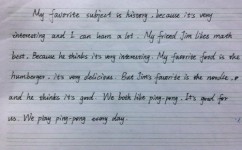 My favorite subject is history. because it's very
interesting and I can learn a lot. My friend Jim likes math
best. Because he thinks it's very interesting. My favorite food is the
humberger. it's very delicious. But Jim's favorite is the noodle.
and he thinks it's good. We both like ping-pong. It's good for
us. We play ping-pong every day.